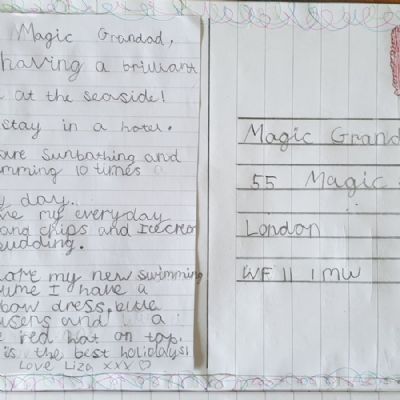 Magic Grandad,
having a brilliant
at the seaside!
stay in a hotel.
sunbathing and
mming 10 times a
day.
me my everyday
and chips and Icecream
pudding.
my new swimming
ume I have a
bow dress, blue
users and a
red hat on top.
is the best holidays!
Love Liza xxx ♡
Magic Grand
55 Magic
London
WF11 1MW